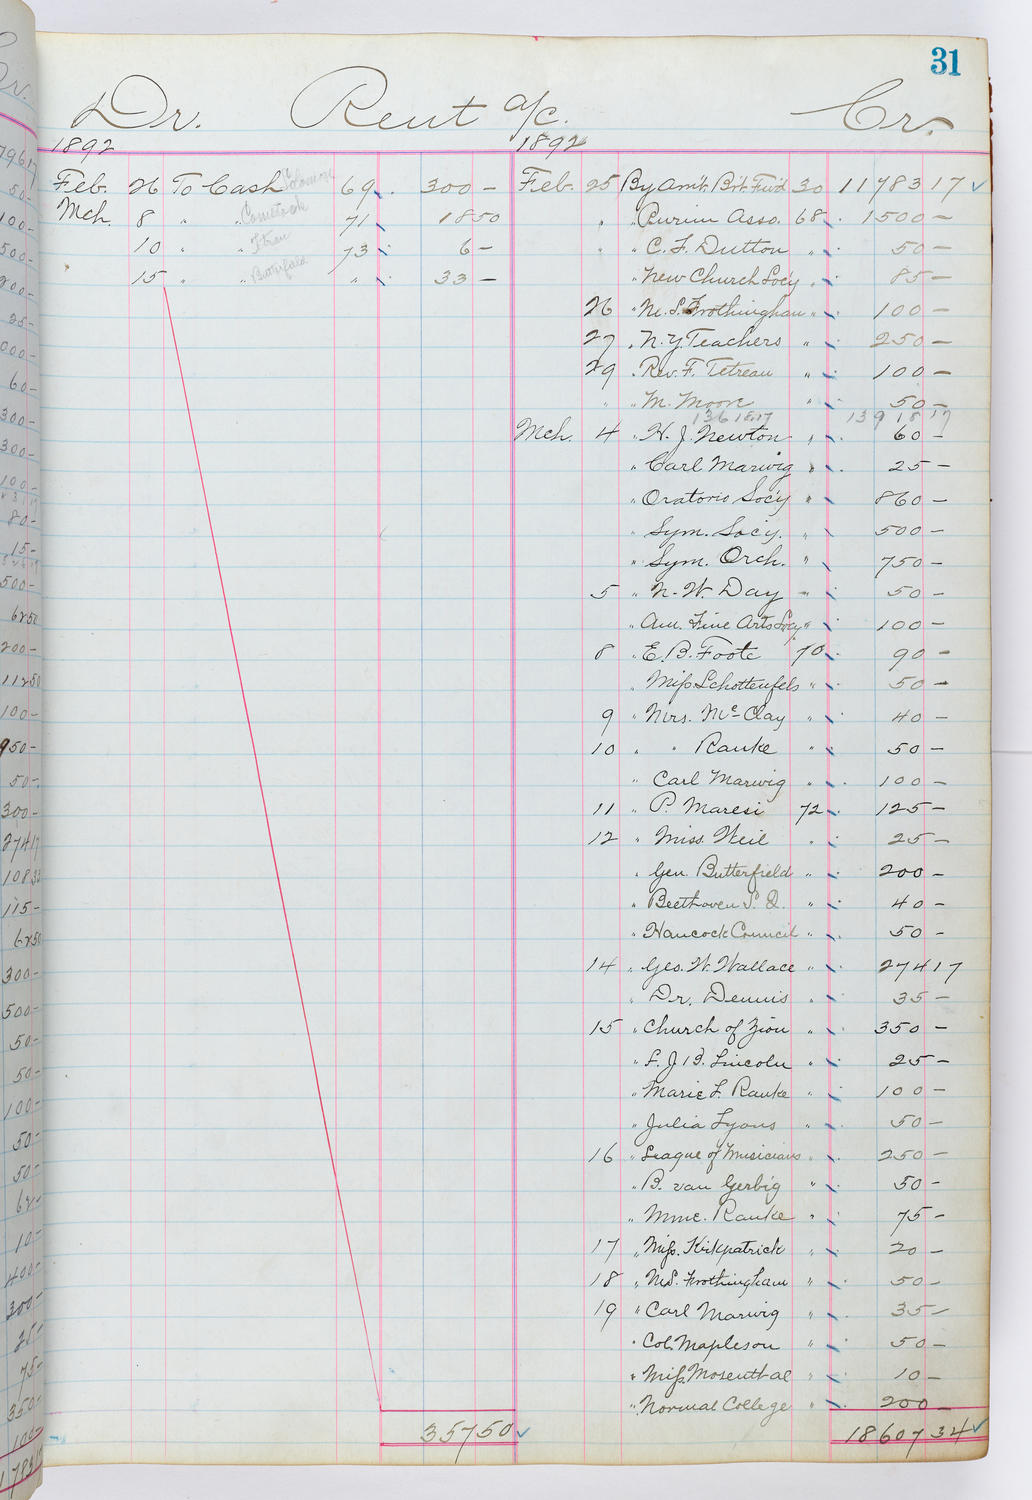 31
Dr. Rent a/c. Cr.
1892 1892
Feb. 26 To Cash 69 300 – Feb. 25 By Amt. Brt. Fwd 30 11783 17 ✓
Mch. 8 " " Comstock 71 18 50 " " Purim Asso. 68 1500 –
10 " " 73 6 – " " C. F. Dutton " 50 –
15 " " Butterfield " 33 – " New Church Socy " 85 –
26 " M. S. Frothingham " 100 –
27 " N.Y. Teachers " 250 –
29 " Rev. F. Tetreau " 100 –
" " M. Moore " 50 –
13618.17 13918 17
Mch. 4 " H. J. Newton " 60 –
" Carl Marwig " 25 –
" Oratorio Socy " 860 –
" Sym. Socy. " 500 –
" Sym. Orch. " 750 –
5 " N. W. Day " 50 –
" Am. Fine Arts Socy " 100 –
8 " E. B. Foote 70 90 –
" Miss Schottenfels " 50 –
9 " Mrs. McClay " 40 –
10 " " Ranke " 50 –
" Carl Marwig " 100 –
11 " P. Maresi 72 125 –
12 " Miss Weil " 25 –
" Gen. Butterfield " 200 –
" Beethoven S. Q. " 40 –
" Hancock Council " 50 –
14 " Geo. W. Wallace " 274 17
" Dr. Dennis " 35 –
15 " Church of Zion " 350 –
" S. J. B. Lincoln " 25 –
" Marie L. Ranke " 100 –
" Julia Lyons " 50 –
16 " League of Musicians " 250 –
" B. van Gerbig " 50 –
" Mme. Ranke " 75 –
17 " Miss. Kirkpatrick " 20 –
18 " M.S. Frothingham " 50 –
19 " Carl Marwig " 35 –
" Col. Mapleson " 50 –
" Miss. Mosenthal " 10 –
" Normal College " 200 –
357 50 ✓ 18607 34 ✓